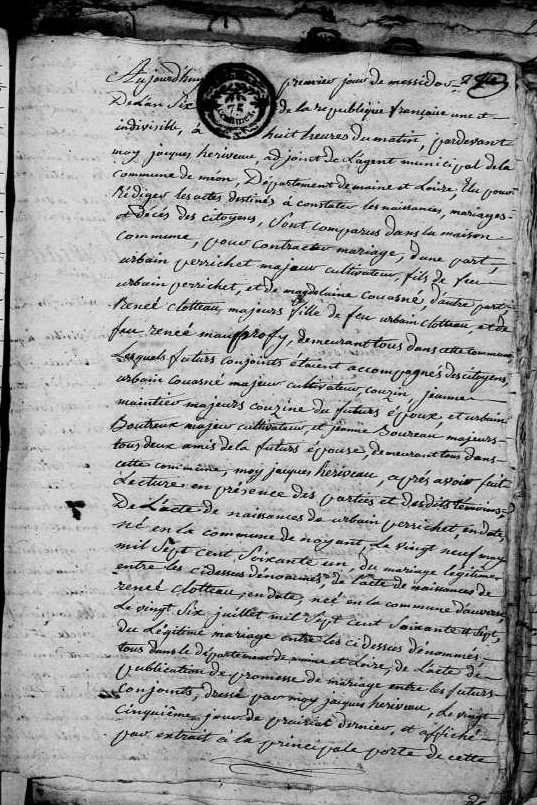 Aujourd'huy premier jour de messidor
De l'an Six de la republique française une et
indivisible, à huit heures du matin, pardevant
moy jacques heriveau, adjoint de L'agent municipal de la
commune de meon, Département de maine et Loire, Elu pour
Rédiger les actes destinés à constater les naissances, mariages
et décès des citoyens, Sont comparus dans la maison
commune, pour contracter mariage, d'une part,
urbain perrichet majeur cultivateur, fils de feu
urbain perrichet, et de magdelaine Couasné, d'autre part,
Reneé Clotteau, majeurs fille de feu urbain Clotteau, et de
feu reneé, demeurant tous dans cette commune,
Lesquels futurs conjoints étaient accompagnés des citoyens,
urbain Couasné majeur cultivateur, couzin, jeanne
maintier majeurs couzine du futurs époux, et urbain
Boutreux majeur cultivateur, et jeanne Boureau majeurs
tous deux amis de la futurs épouse, demeurant tous dans
cette commune, moy jacques heriveau, après avoir fait
Lecture en présence des parties et desdits témoins,
De L'acte de naissances de urbain perrichet, en date,
né en la commune de noyant, Le vingt neuf may
mil Sept cent Soixante un, du mariage légitime
entre les cidessus dénommés, de l'acte de naissances de
reneé Clotteau, en date, neé en la commune d'auversé,
Le vingt Six juillet mil Sept cent Soixante et Sept,
du Légitime mariage entre les cidessus dénommés,
tous dans le département de maine et Loire, de L'acte de
publication de promesse de mariage entre les futurs
conjoints, dressé par moy jacques heriveau, Le vingt
cinquième jour de prairial dernier, et affiché
par extrait à la principale porte de cette